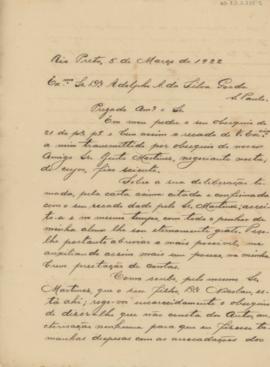 Rio Preto, 5 de Março de 1922
Exmo Snr. Dr. Adolpho A. da Silva Gordo
S. Paulo.
Prezado Amo e Sr
Em meu poder o seu obsequio de
21 do pp. pt. e bem assim o recado de V. Exa
a mim transmittido por obsequio do nosso
Amigo Sr. Martinez, negociante nesta,
de cujos, fico sciente.
Sobre a sua deliberação to-
mada, pela carta acima citada e confirmada
com o seu recado dado pelo Sr. Martinez; accei-
to-a e ao mesmo tempo, com todo o penhor de
minha alma lhe sou eternamente grato. Peço
lhe portanto abreviar o mais possivel, me
auxiliando assim mais em pouco na minha
prestação de contas.
Como soube, pelo mesmo Sr
Martinez, que o seu filho, Dr. es-
tá ahi; rogo-vos encarecidamente o obsequio
de dizer-lhe que não consta dos Autos, au-
torisação nenhuma para que eu fizesse ta-
manhas despesas com as arrecadações dos